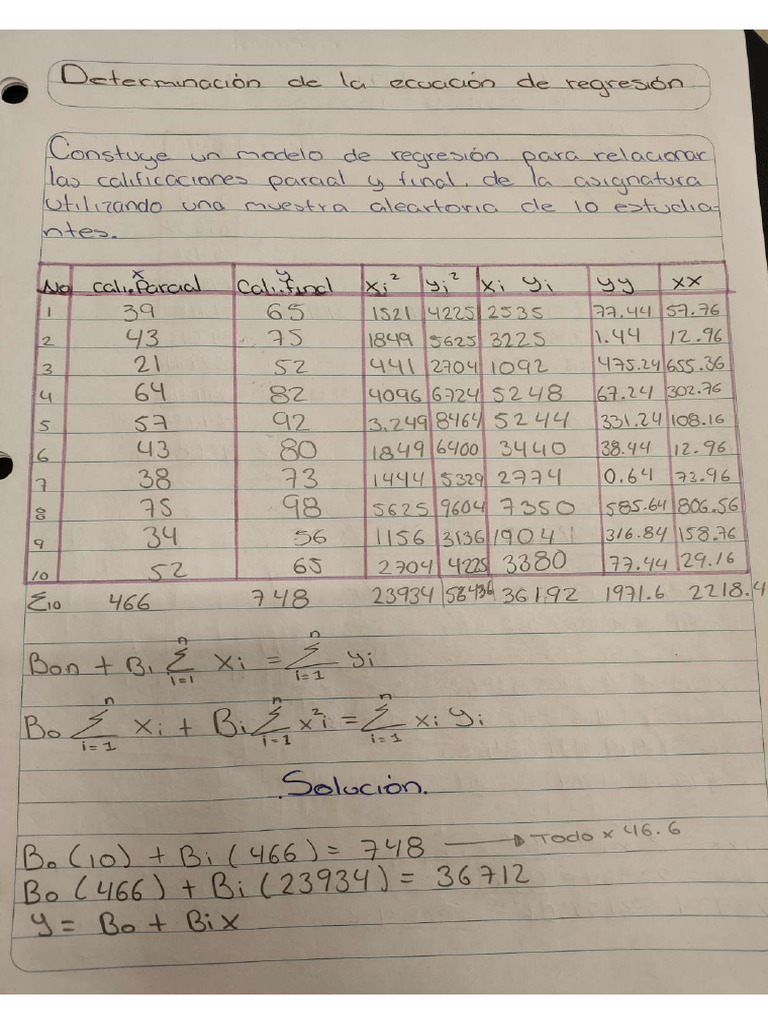 Determinación de la ecuación de regresión
Constuye un modelo de regresión para relacionar
las calificaciones parcial y final, de la asignatura
utilizando una muestra aleartoria de 10 estudia-
ntes.
No x cali. Parcial y Cali. final xi² yi² xi yi yy xx
1 39 65 1521 4225 2535 77.44 57.76
2 43 75 1849 5625 3225 1.44 12.96
3 21 52 441 2704 1092 475.24 655.36
4 64 82 4096 6724 5248 67.24 302.76
5 57 92 3,249 8464 5244 331.24 108.16
6 43 80 1849 6400 3440 38.44 12.96
7 38 73 1444 5329 2774 0.64 73.96
8 75 98 5625 9604 7350 585.64 806.56
9 34 56 1156 3136 1904 316.84 158.76
10 52 65 2704 4225 3380 77.44 29.16
Σ10 466 748 23934 56436 36192 1971.6 2218.4
Bon + Bi Σⁿi=1 xi = Σⁿi=1 yi
Bo Σⁿi=1 xi + Bi Σⁿi=1 x²i = Σⁿi=1 xi yi
Solución.
Bo (10) + Bi (466) = 748 → Todo x 46.6
Bo (466) + Bi (23934) = 36712
y = Bo + Bix